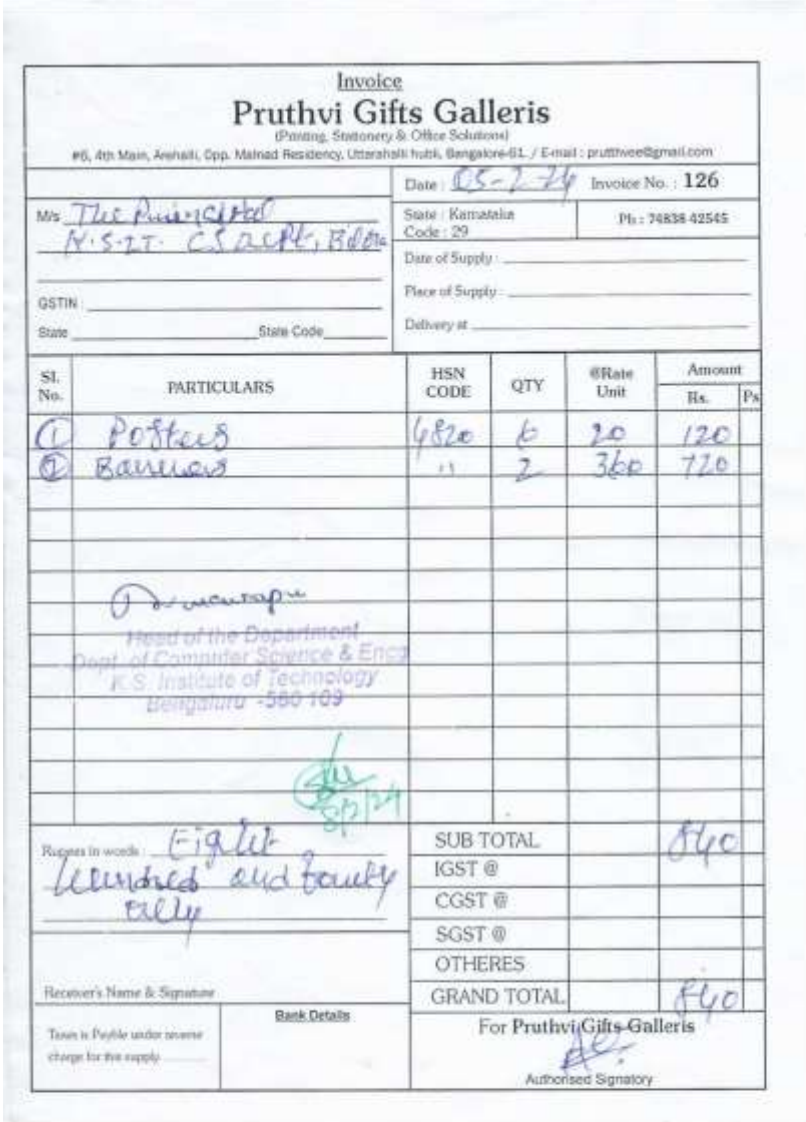 Invoice
Pruthvi Gifts Galleris
(Printing, Stationery & Office Solutions)
#6, 4th Main, Arehalli, Opp. Malnad Residency, Uttarahalli hubli, Bangalore-61. / E-mail : prutthvee@gmail.com
Date : 05-2-24 Invoice No. : 126
M/s The Principal
K.S.IT. CS Dept, Bglore
State : Karnataka
Code : 29
Ph : 74838 42545
Date of Supply :
Place of Supply :
GSTIN :
State State Code
Delivery at
Sl. No. PARTICULARS HSN CODE QTY @Rate Unit Amount Rs. Ps
1 Posters 4820 6 20 120
2 Banners " 2 360 720
Head of the Department
Dept. of Computer Science & Engg
K.S. Institute of Technology
Bengaluru - 560 109
8/2/24
Rupees in words : Eight
hundred and fourty
only
SUB TOTAL 840
IGST @
CGST @
SGST @
OTHERES
GRAND TOTAL 840
Receiver's Name & Signature
Taxes is Payble under reverse
charge for this supply
Bank Details
For Pruthvi Gifts Galleris
Authorised Signatory